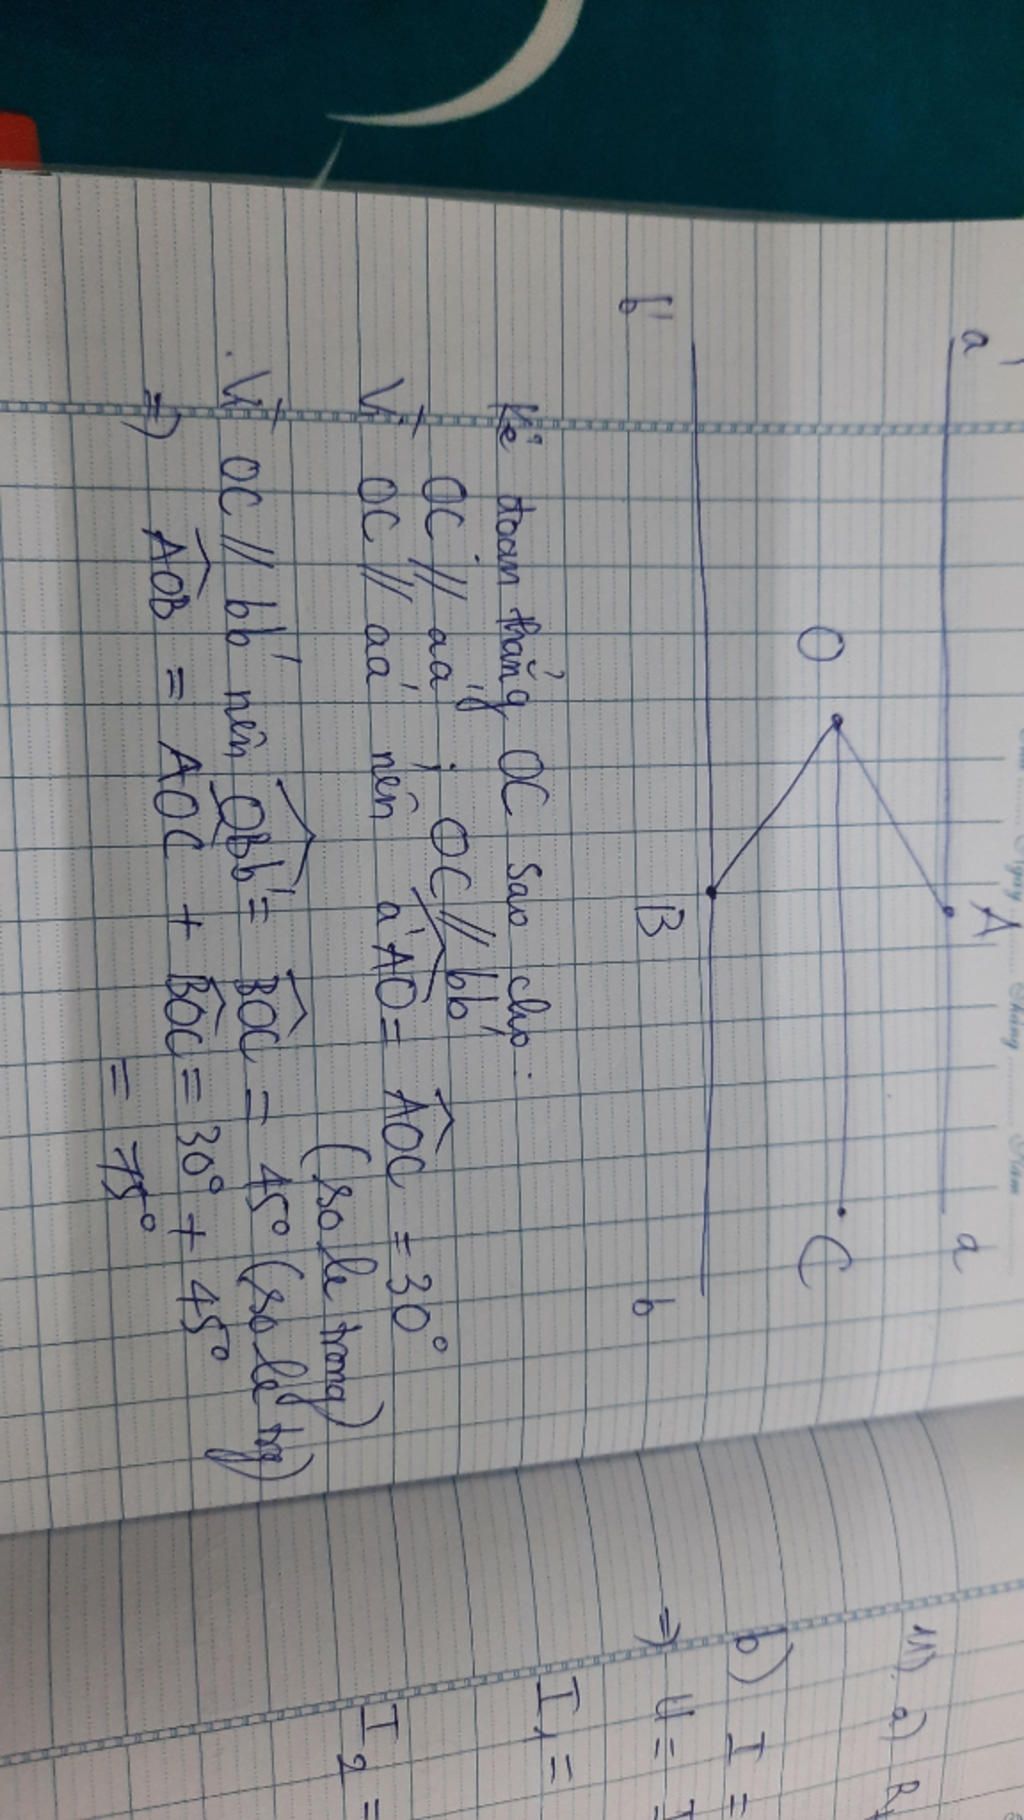 a' A a
O C
b' B b
Kẻ đoạn thẳng OC sao cho:
OC // aa' ; OC // bb'
Vì OC // aa' nên a'AO = AOC = 30°
(so le trong)
Vì OC // bb' nên OBb' = BOC = 45° (so le trg)
=> AOB = AOC + BOC = 30° + 45°
= 75°
a)
b) I =
=> U =
I1 =
I2 =